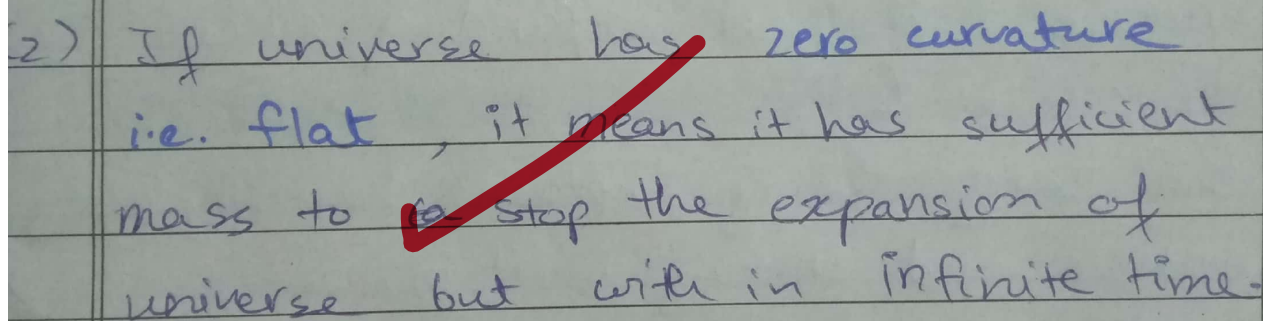 2) If universe has zero curvature
i.e. flat, it means it has sufficient
mass to stop the expansion of
universe but with in infinite time.